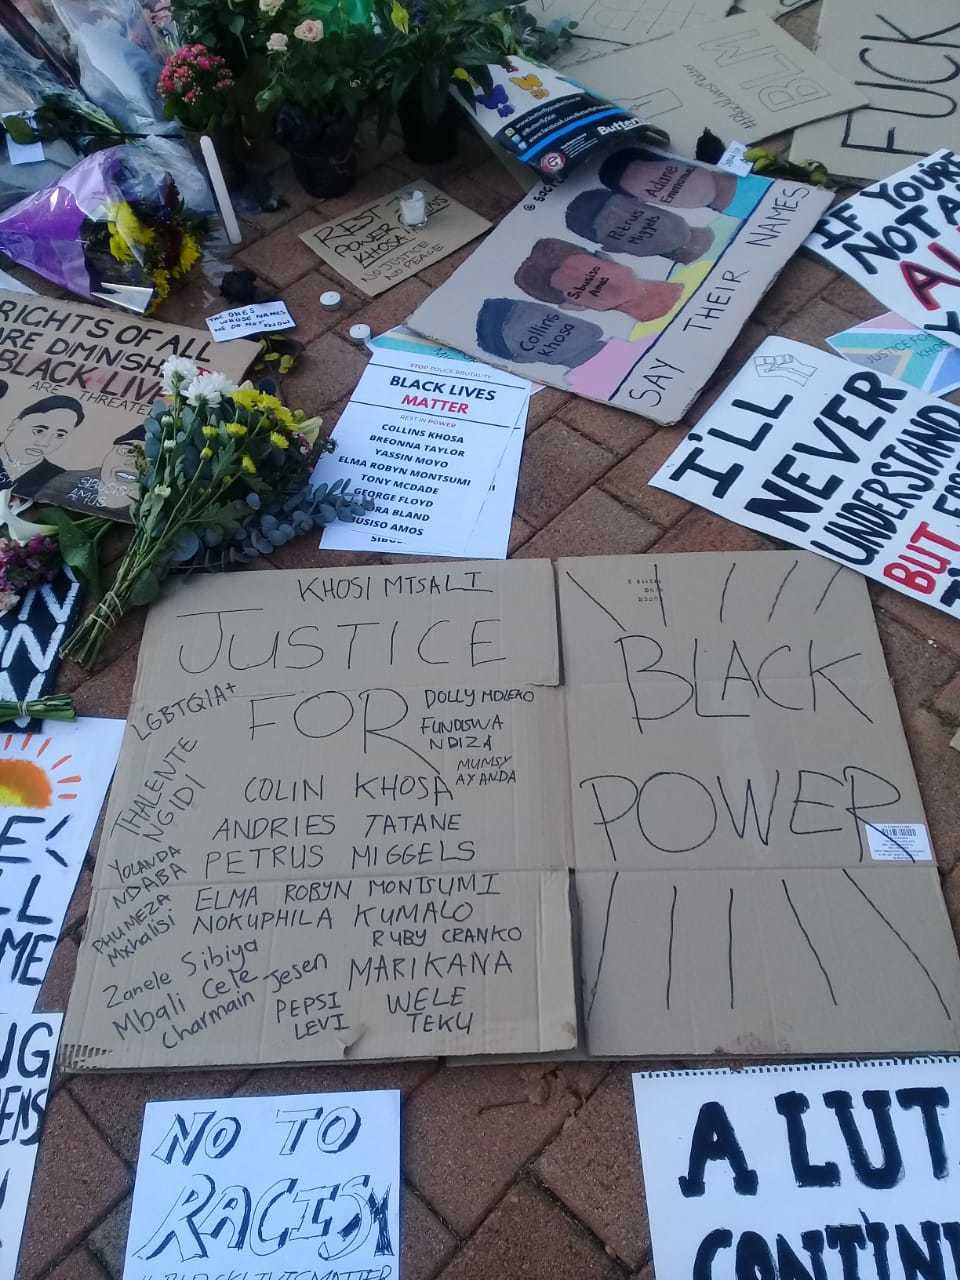 BLM
#BlackLivesMatter
FUCK
www.butterfly
facebook.com/butterfly
Butter
REST
POWER
KHOSA
NO JUSTICE
NO PEACE
Adane
Emmanuel
Petrus
Miggels
Sibusiso
Amos
Collins
Khosa
SAY THEIR NAMES
IF YOU'RE
NOT A
JUSTICE FOR
THE ONES
WHOSE NAMES
WE DO NOT KNOW
RIGHTS OF ALL
ARE DIMINISH
BLACK LIVE
ARE
THREATE
AMOS
STOP POLICE BRUTALITY
BLACK LIVES
MATTER
REST IN POWER
COLLINS KHOSA
BREONNA TAYLOR
YASSIN MOYO
ELMA ROBYN MONTSUMI
TONY MCDADE
GEORGE FLOYD
ORA BLAND
USISO AMOS
I'LL
NEVER
UNDERSTAND
BUT
KHOSI MTSALI
JUSTICE
FOR
LGBTQIA+
DOLLY MDLEKO
FUNDISWA
NDIZA
MUMSY
AYANDA
THALENTE
NGIDI
COLIN KHOSA
ANDRIES TATANE
PETRUS MIGGELS
YOLANDA
NDABA
ELMA ROBYN MONTSUMI
NOKUPHILA KUMALO
PHUMEZA
Mxhalisi
RUBY CRANKO
Zanele Sibiya
MARIKANA
Mbali Cele
Charmain Jesen
PEPSI
LEVI
WELE
TEKU
BLACK
POWER
E
LL
ME
NG
ENS
NO TO
RACISM
#BLACKLIVESMATTER
A LUT
CONTIN